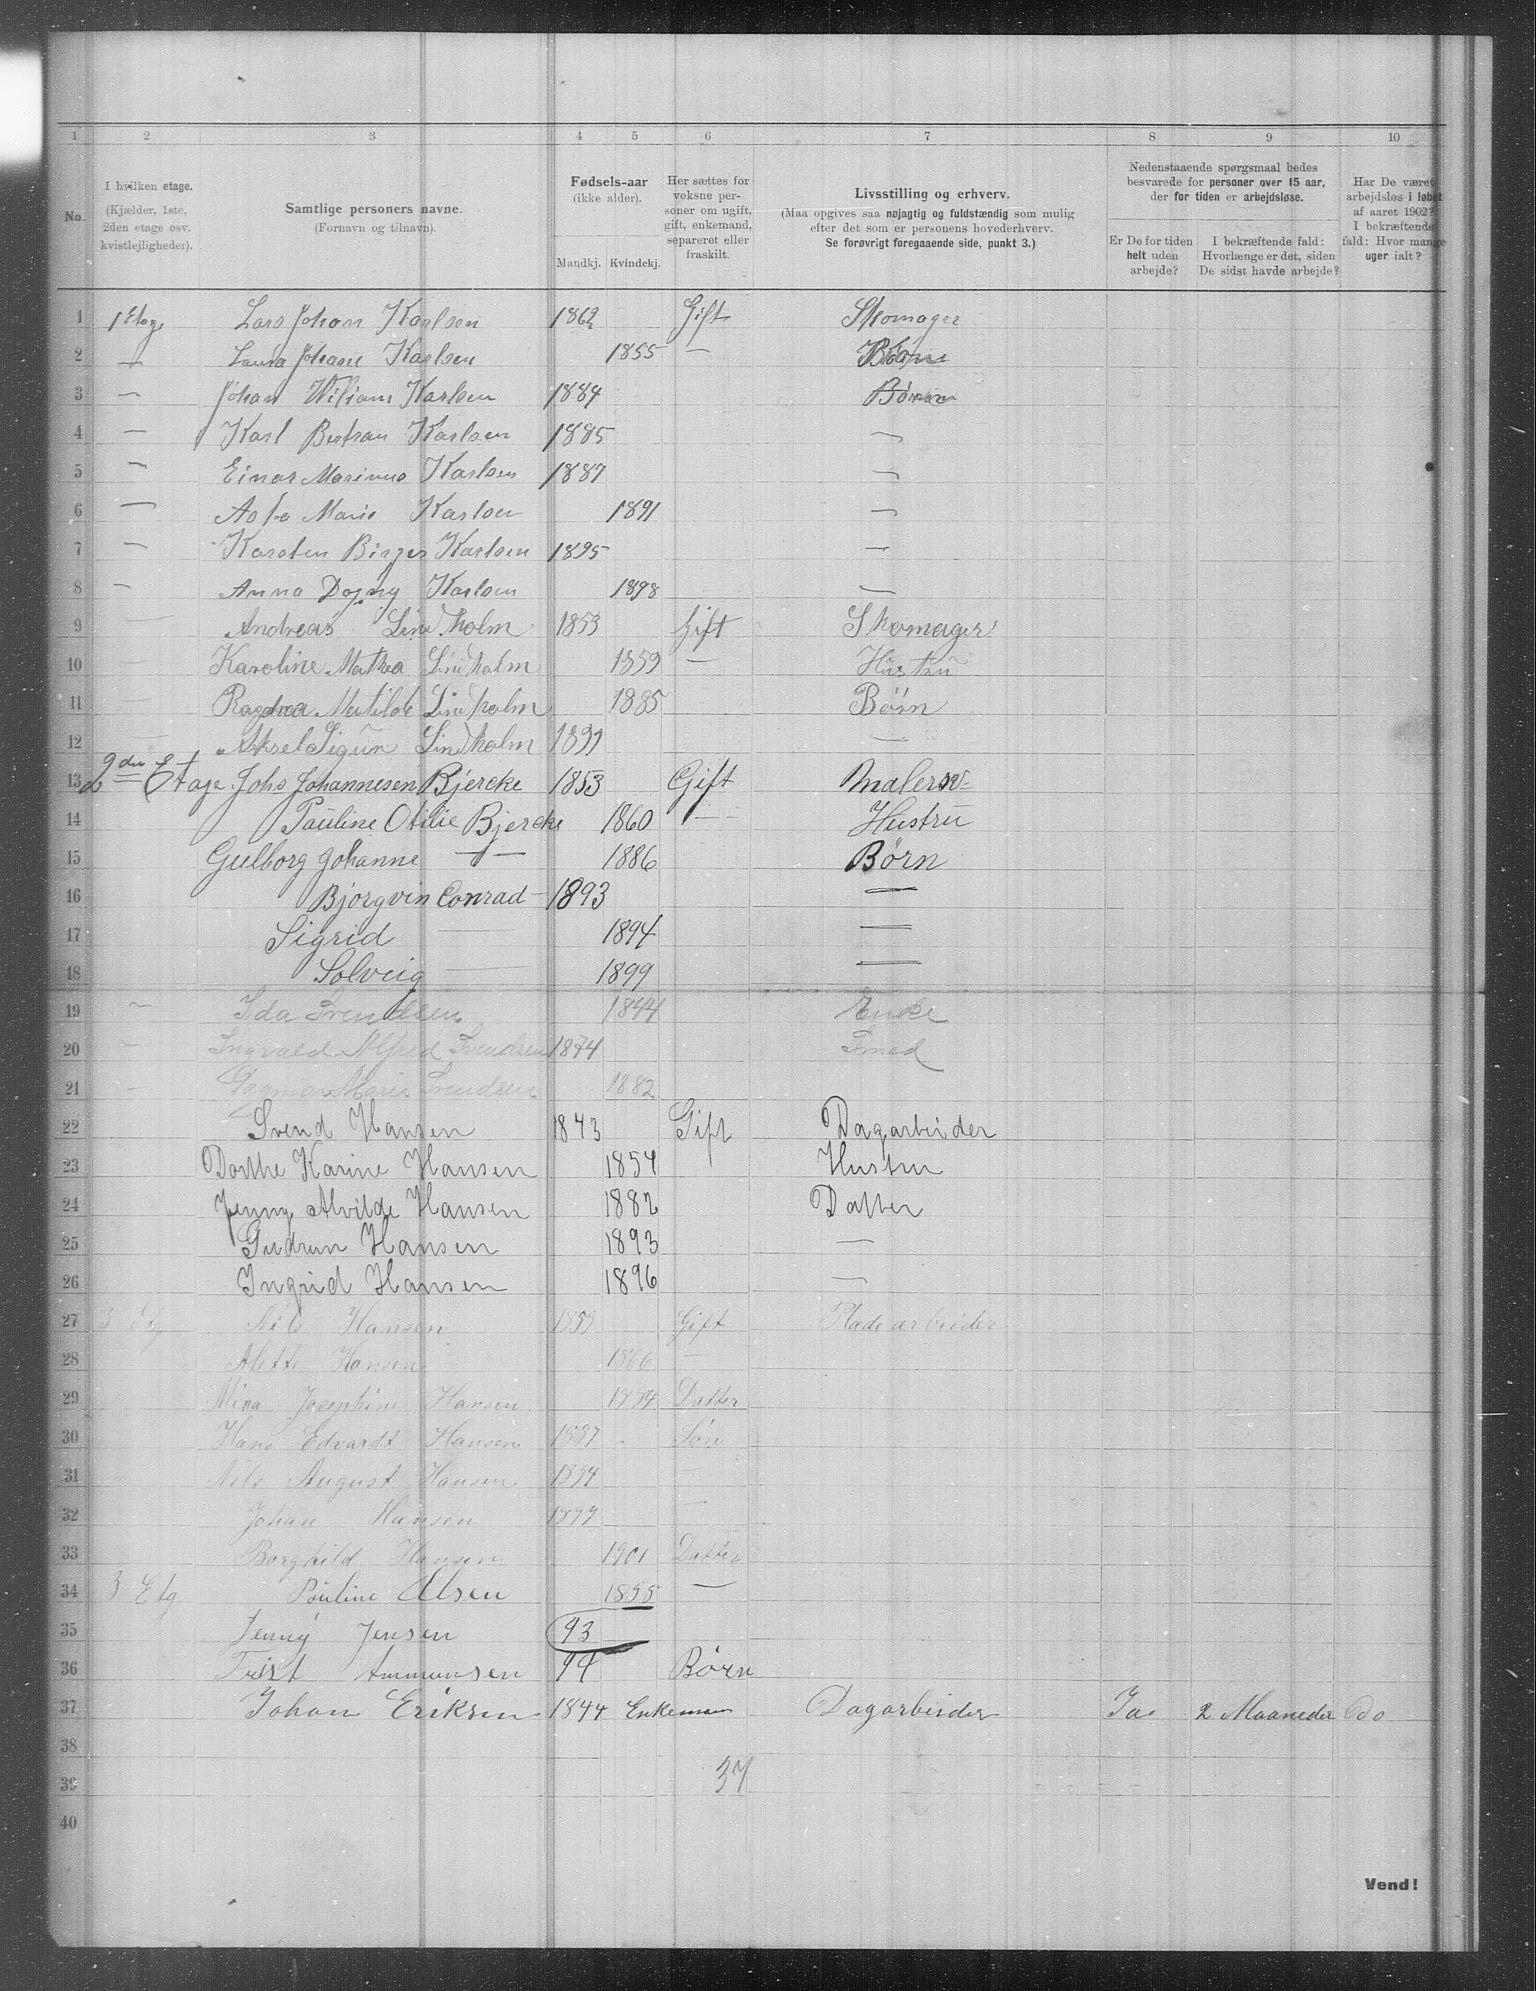 1 2 3 4 5 6 7 8 9 10
No. I hvilken etage. (Kjælder, 1ste, 2den etage osv. kvistlejligheder). Samtlige personers navne. (Fornavn og tilnavn). Fødsels-aar (ikke alder). Mandkj. Kvindekj. Her sættes for voksne personer om ugift, gift, enkemand, separeret eller fraskilt. Livsstilling og erhverv. (Maa opgives saa nøjagtig og fuldstændig som mulig efter det som er personens hovederhverv. Se forøvrigt foregaaende side, punkt 3.) Nedenstaaende spørgsmaal bedes besvarede for personer over 15 aar, der for tiden er arbejdsløse. Er De for tiden helt uden arbejde? I bekræftende fald: Hvorlænge er det, siden De sidst havde arbejde? Har De været arbejdsløs i løbet af aaret 1902? I bekræftende fald: Hvor mange uger ialt?
1 1 Etage Lars Johan Karlsen 1862 Gift Skomager
2 — Laura Johane Karlsen 1855 —
3 — Johan Wiliam Karlsen 1884 Børn
4 — Karl Bertran Karlsen 1885 —
5 — Einar Marinus Karlsen 1887 —
6 — Asta Marie Karlsen 1891 —
7 — Karsten Birger Karlsen 1895 —
8 — Anna Dagny Karlsen 1898 —
9 — Andreas Lindholm 1853 Gift Skomager
10 — Karoline Mathea Lindholm 1859 — Hustru
11 — Ragna Matilde Lindholm 1885 Børn
12 — Aksel Sigur Lindholm 1891 —
13 2den Etage Johs Johannesen Bjercke 1853 Gift Malersv=
14 Pauline Otilie Bjercke 1860 — Hustru
15 Gulborg Johanne — 1886 Børn
16 Bjorgvin Conrad — 1893 —
17 Sigrid — 1894 —
18 Solveig — 1899 —
19 — Ida Svendsen 1844 Enke
20 — Ingvald Alfred Svendsen 1874 Smed
21 — Dagmar Marie Svendsen 1882
22 Svend Hansen 1843 Gift Dagarbeider
23 Dorthe Karine Hansen 1854 Hustru
24 Jenny Alvilde Hansen 1882 Datter
25 Gudrun Hansen 1893 —
26 Ingrid Hansen 1896 —
27 3 Etg Nils Hansen 1859 Gift Pladearbeider
28 Alette Hansen 1866 —
29 Mina Josephine Hansen 1884 Datter
30 Hans Edvardt Hansen 1887 Søn
31 Nils August Hansen 1894 —
32 Johan Hansen 1899 —
33 Borghild Hansen 1901 Datter
34 3 Etg Pauline Olsen 1855 —
35 Jenny Jensen 93
36 Ammunsen 94 Børn
37 Johan Eriksen 1844 Enkeman Dagarbeider Ja 2 Maaneder Do
38
39 37
40
Vend!